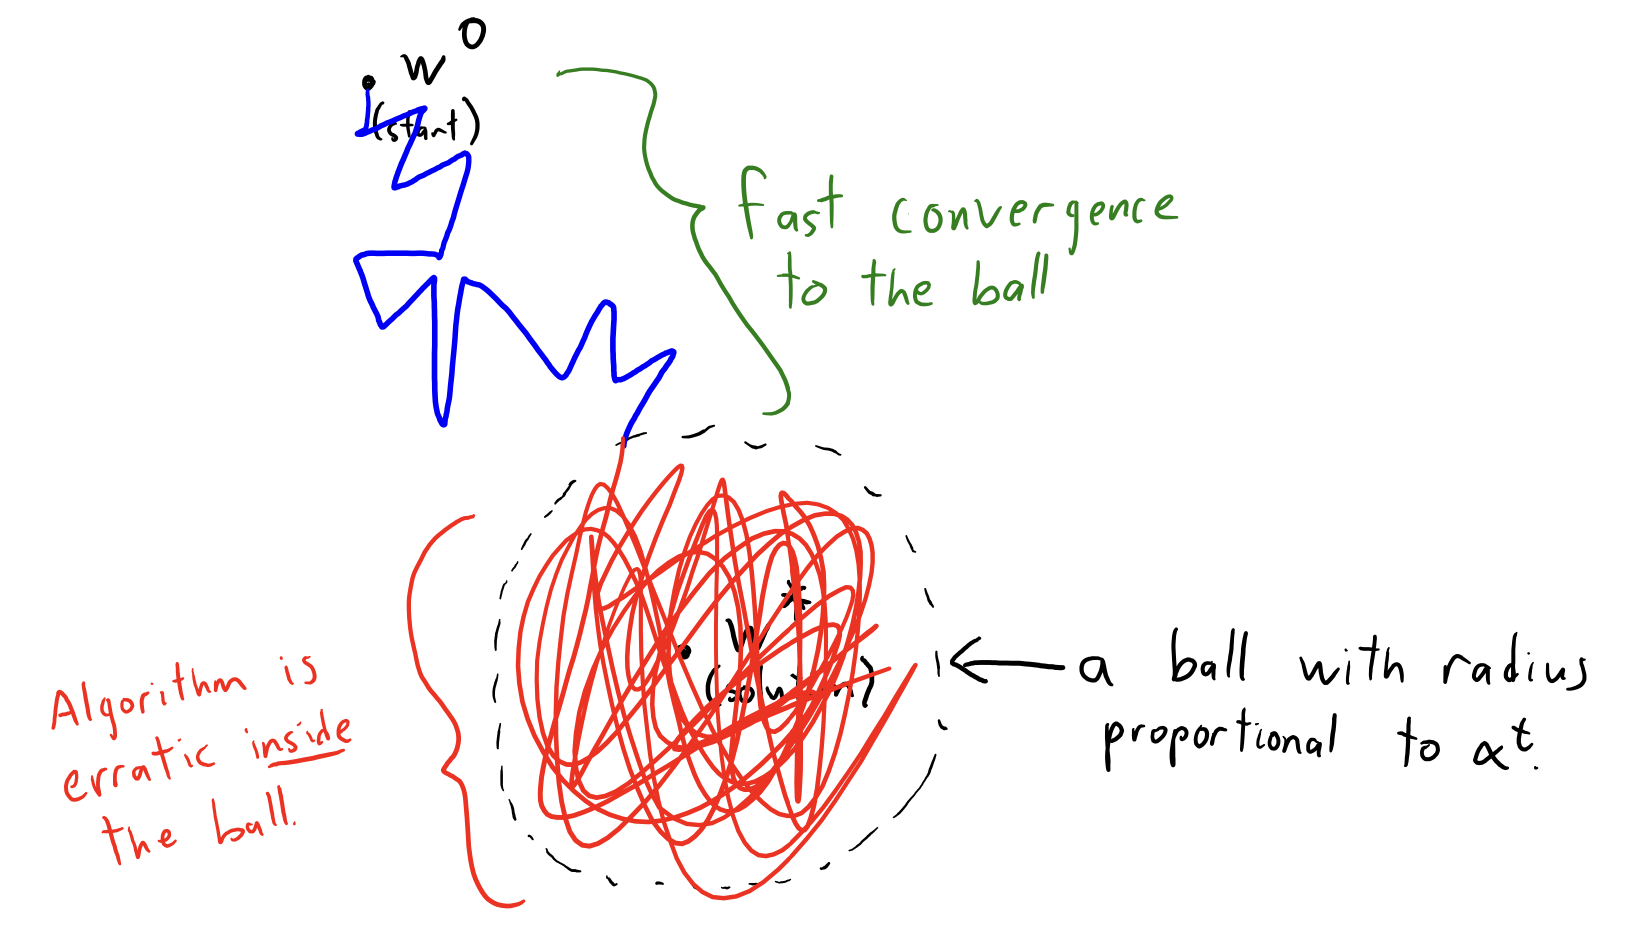 w⁰
(start)
fast convergence
to the ball
w*
(solution)
a ball with radius
proportional to αᵗ.
Algorithm is
erratic inside
the ball.